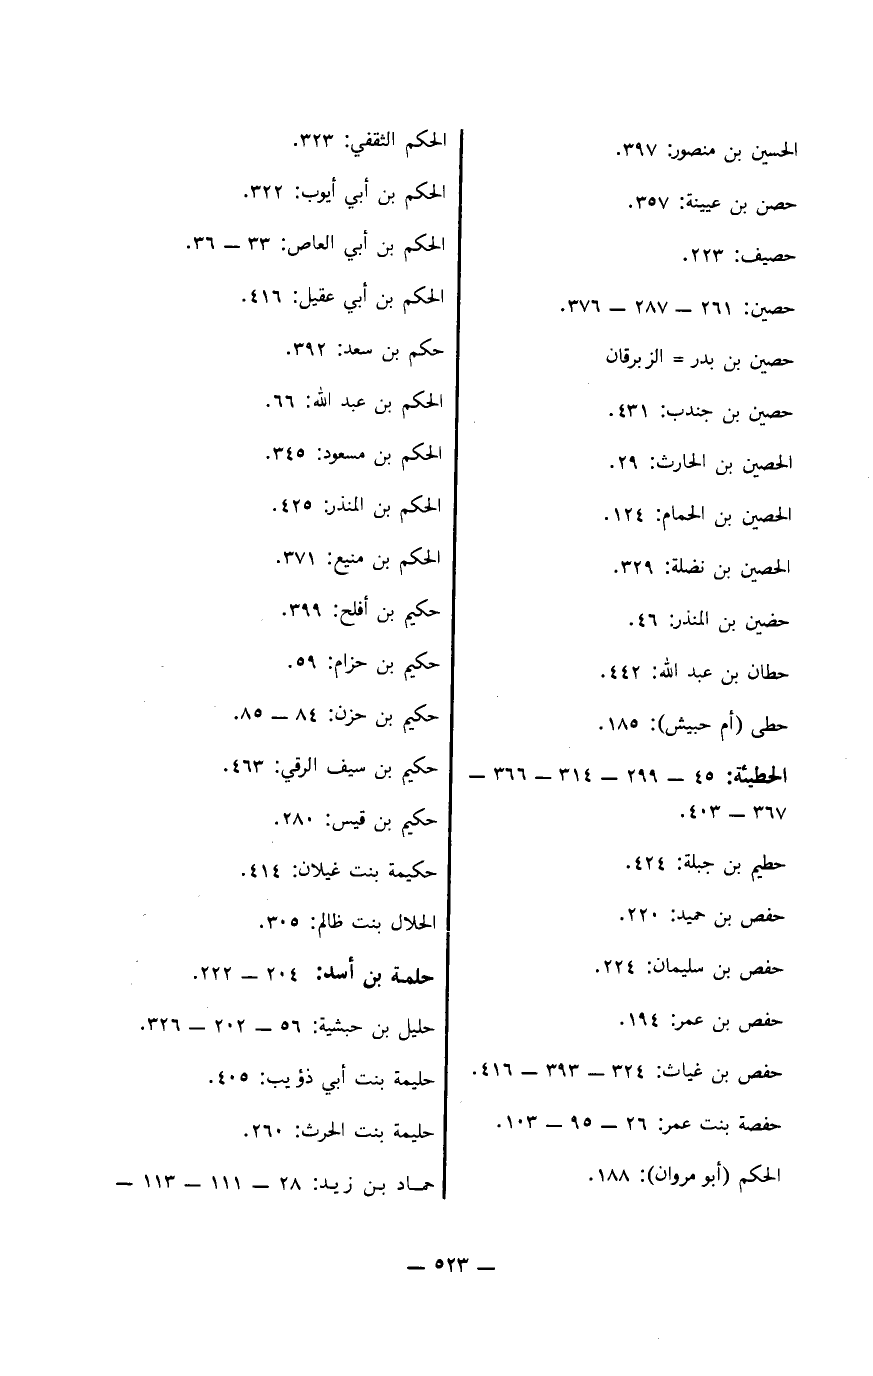 الحسين بن منصور: ٣٩٧.
حصن بن عيينة: ٣٥٧.
حصيف: ٢٢٣.
حصين: ٢٦١ – ٢٨٧ – ٣٧٦.
حصين بن بدر = الزبرقان
حصين بن جندب: ٤٣١.
الحصين بن الحارث: ٢٩.
الحصين بن الحمام: ١٢٤.
الحصين بن نضلة: ٣٢٩.
حضين بن المنذر: ٤٦.
حطان بن عبد الله: ٤٤٢.
حطى (أم حبيش): ١٨٥.
الحطيئة: ٤٥ – ٢٩٩ – ٣١٤ – ٣٦٦ –
٣٦٧ – ٤٠٣.
حطيم بن جبلة: ٤٢٤.
حفص بن حميد: ٢٢٠.
حفص بن سليمان: ٢٢٤.
حفص بن عمر: ١٩٤.
حفص بن غياث: ٣٢٤ – ٣٩٣ – ٤١٦.
حفصة بنت عمر: ٢٦ – ٩٥ – ١٠٣.
الحكم (أبو مروان): ١٨٨.
الحكم الثقفي: ٣٢٣.
الحكم بن أبي أيوب: ٣٢٢.
الحكم بن أبي العاص: ٣٣ – ٣٦.
الحكم بن أبي عقيل: ٤١٦.
حكم بن سعد: ٣٩٢.
الحكم بن عبد الله: ٦٦.
الحكم بن مسعود: ٣٤٥.
الحكم بن المنذر: ٤٢٥.
الحكم بن منيع: ٣٧١.
حكيم بن أفلح: ٣٩٩.
حكيم بن حزام: ٥٩.
حكيم بن حزن: ٨٤ – ٨٥.
حكيم بن سيف الرقي: ٤٦٣.
حكيم بن قيس: ٢٨٠.
حكيمة بنت غيلان: ٤١٤.
الحلال بنت ظالم: ٣٠٥.
حلمة بن أسد: ٢٠٤ – ٢٢٢.
حليل بن حبشية: ٥٦ – ٢٠٢ – ٣٢٦.
حليمة بنت أبي ذؤيب: ٤٠٥.
حليمة بنت الحرث: ٢٦٠.
حماد بن زيد: ٢٨ – ١١١ – ١١٣ –
– ٥٢٣ –